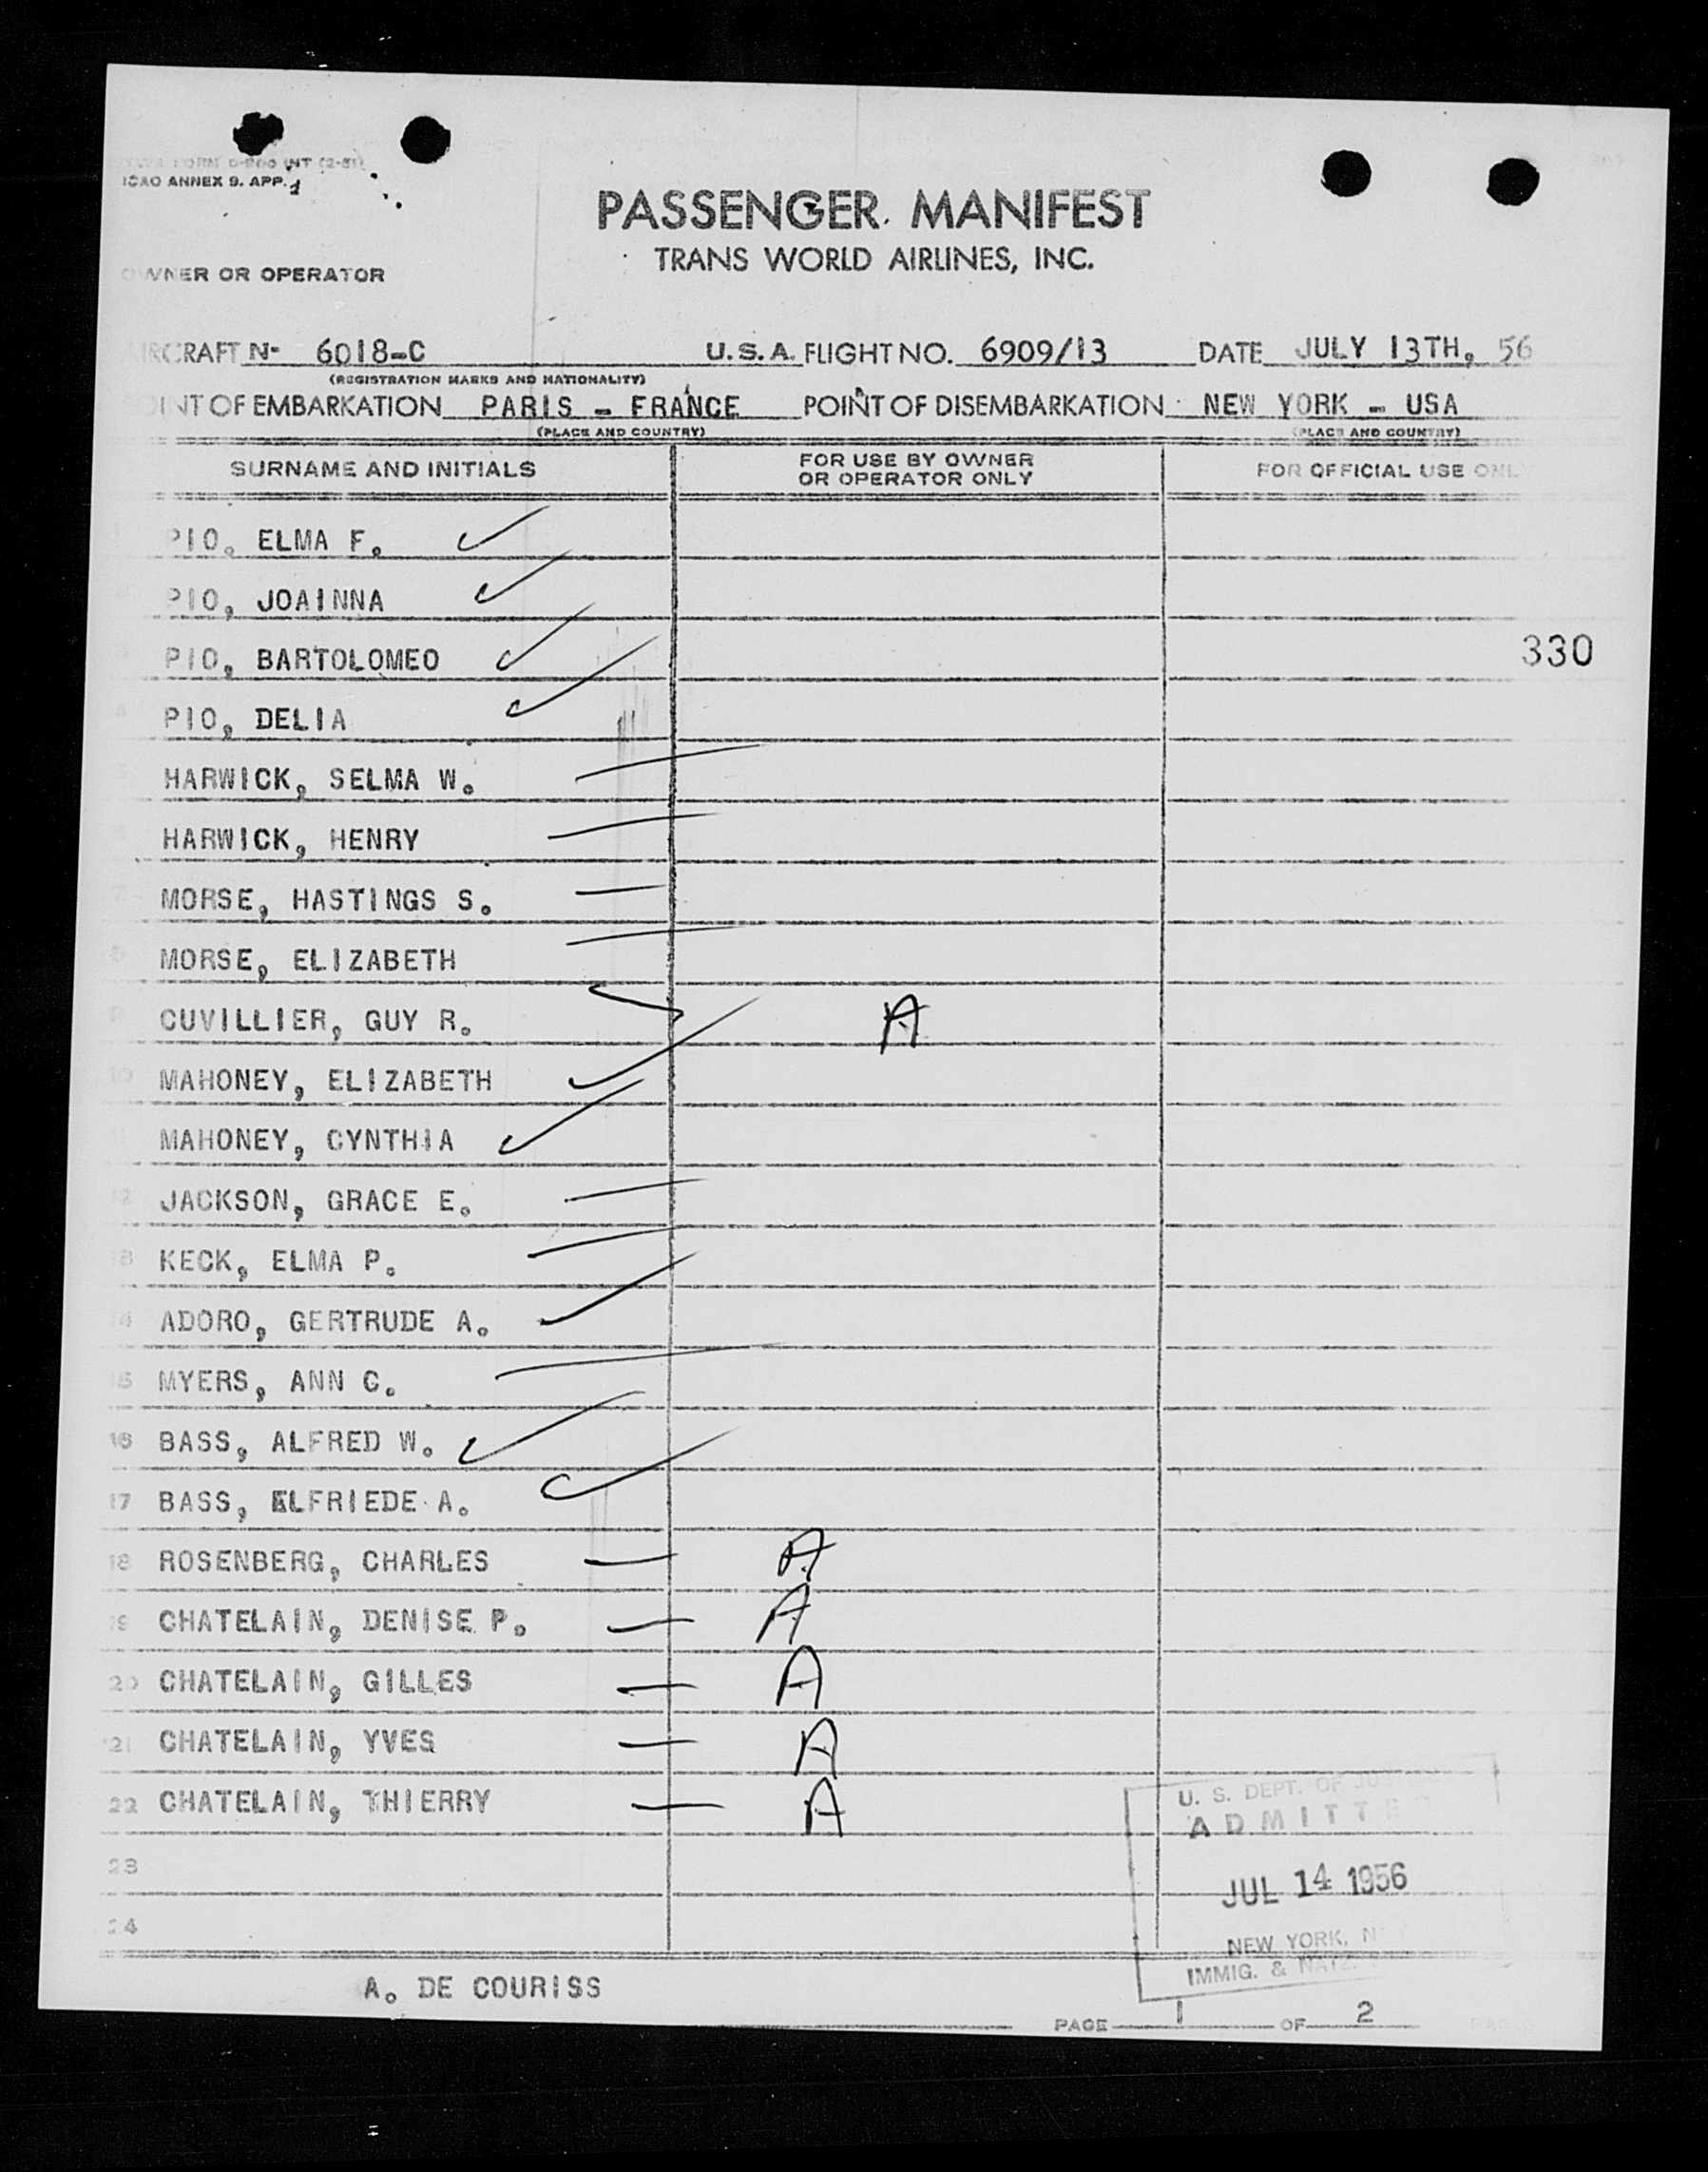 FORM D-800 INT (2-51)
ICAO ANNEX 9. APP.
PASSENGER MANIFEST
TRANS WORLD AIRLINES, INC.
OWNER OR OPERATOR
AIRCRAFT N- 6018-C U.S.A. FLIGHT NO. 6909/13 DATE JULY 13TH, 56
(REGISTRATION MARKS AND NATIONALITY)
POINT OF EMBARKATION PARIS - FRANCE POINT OF DISEMBARKATION NEW YORK - USA
(PLACE AND COUNTRY) (PLACE AND COUNTRY)
SURNAME AND INITIALS FOR USE BY OWNER OR OPERATOR ONLY FOR OFFICIAL USE ONLY
PIO, ELMA F.
PIO, JOAINNA
PIO, BARTOLOMEO 330
PIO, DELIA
HARWICK, SELMA W.
HARWICK, HENRY
7 MORSE, HASTINGS S.
8 MORSE, ELIZABETH
9 CUVILLIER, GUY R. A
10 MAHONEY, ELIZABETH
11 MAHONEY, CYNTHIA
12 JACKSON, GRACE E.
13 KECK, ELMA P.
14 ADORO, GERTRUDE A.
15 MYERS, ANN C.
16 BASS, ALFRED W.
17 BASS, ELFRIEDE A.
18 ROSENBERG, CHARLES A
19 CHATELAIN, DENISE P. A
20 CHATELAIN, GILLES A
21 CHATELAIN, YVES A
22 CHATELAIN, THIERRY A
23
24
U. S. DEPT. OF JUSTICE
ADMITTED
JUL 14 1956
NEW YORK, N
IMMIG. & NATZ.
A. DE COURISS
PAGE 1 OF 2